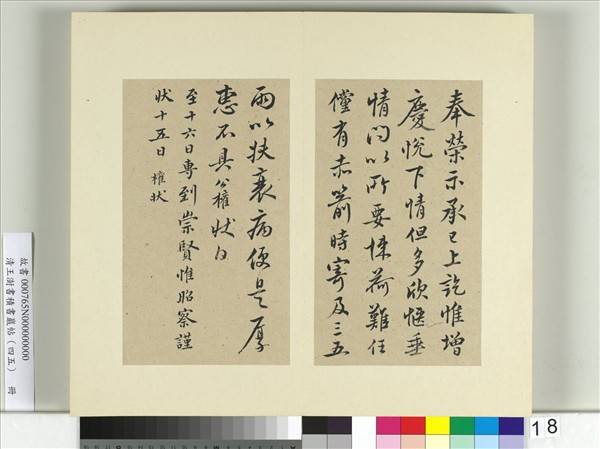 奉榮示承已上訖惟增
慶悅下情但多欣愜垂
情問以所要悚荷難任
儻有赤箭時寄及三五
兩以扶衰病便是厚
惠不具公權狀白
至十六日專到崇賢惟昭察謹
狀十五日 權狀
故書 000765N000000000
清王澍書積書巖帖(四五) 冊
18